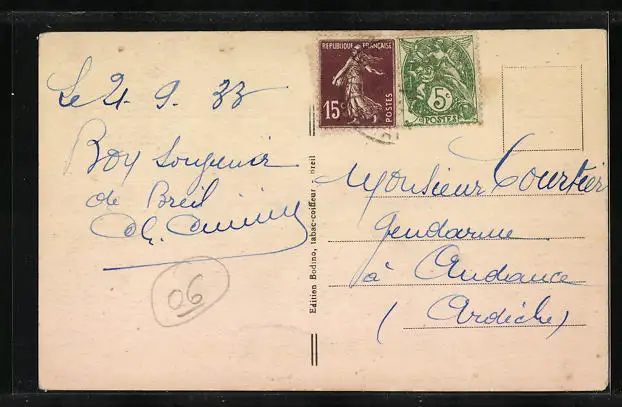 Le 21. 9. 33
Bon Souvenir
de Breil
Ch.
06
Edition Bodino, tabac-coiffeur, Breil
REPUBLIQUE FRANÇAISE
15c
POSTES
5c
POSTES
Monsieur Courtier
Gendarme
à Andance
(Ardèche)